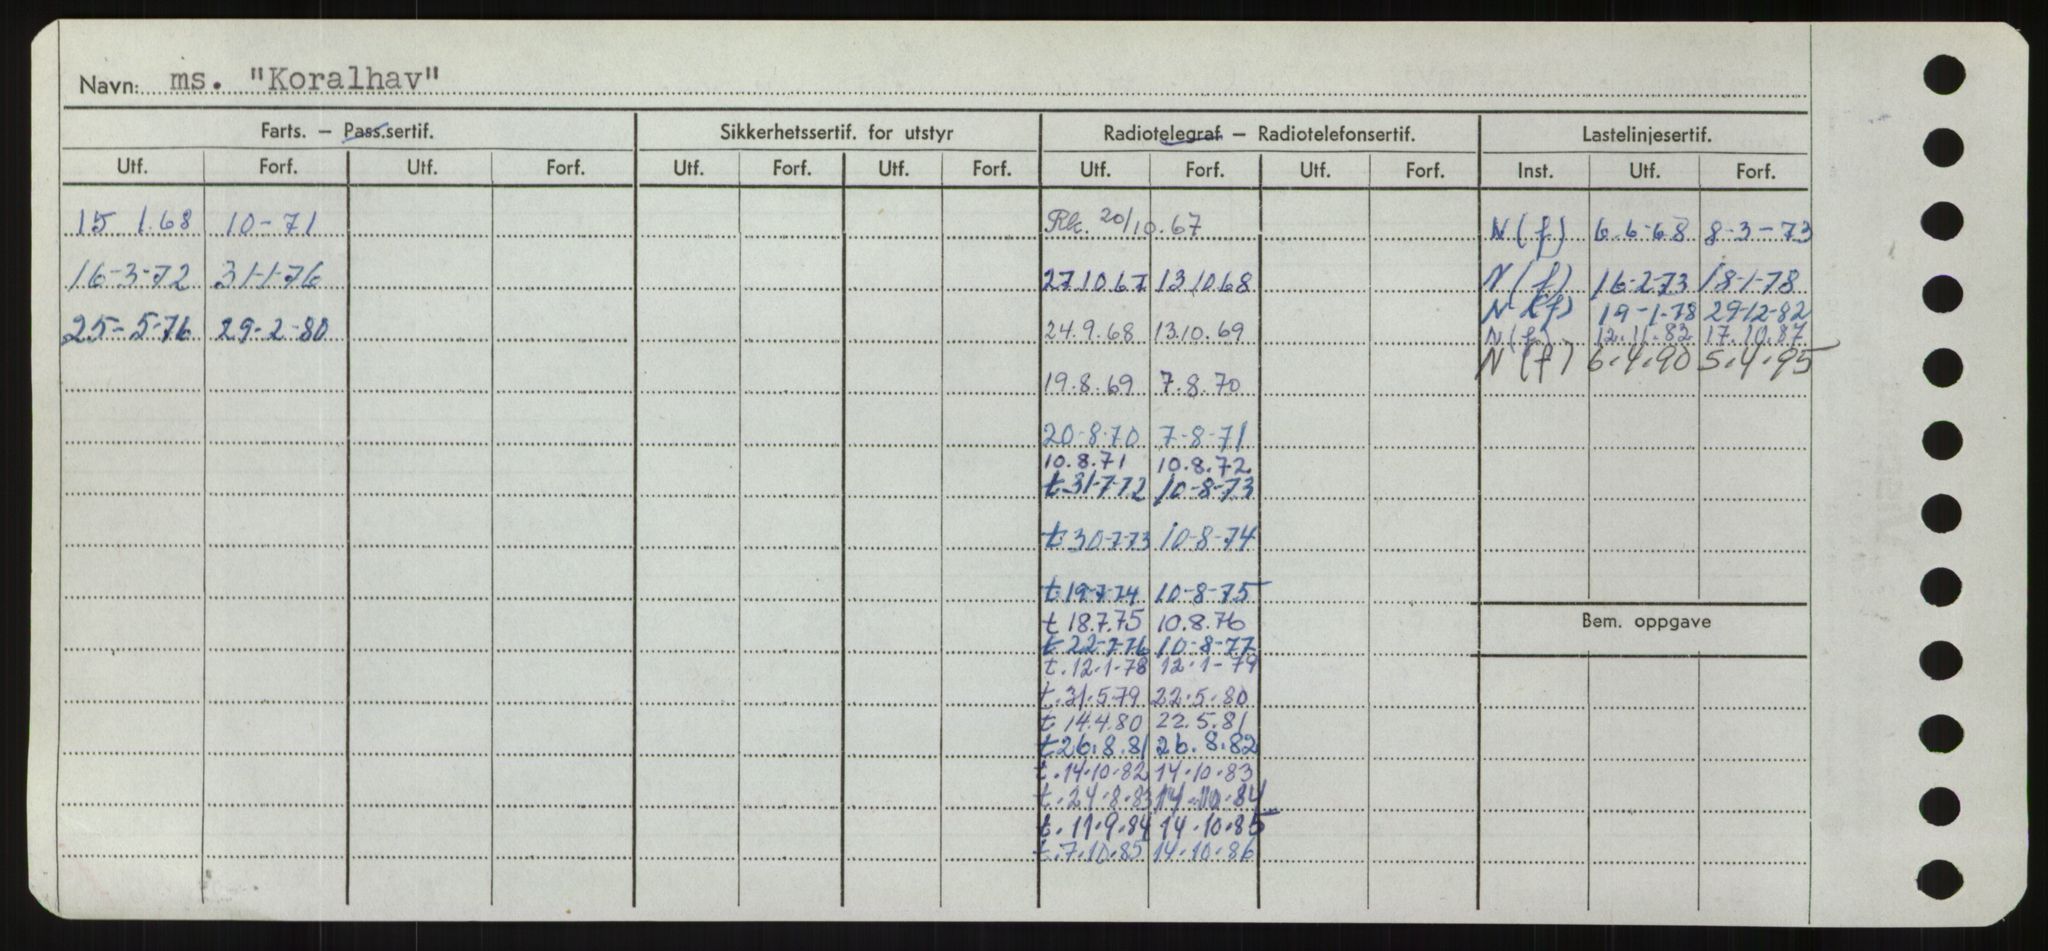 Navn: ms. "Koralhav"
Farts. – Pass.sertif. Sikkerhetssertif. for utstyr Radiotelegraf – Radiotelefonsertif. Lastelinjesertif.
Utf. Forf. Utf. Forf. Utf. Forf. Utf. Forf. Utf. Forf. Utf. Forf. Inst. Utf. Forf.
15 1.68 10-71 Rk. 20/10.67 N(f) 6.6-68 8-3-73
16-3-72 31-1-76 27.10.67 13.10.68 N(f) 16-2-73 18-1-78
N(f) 19-1-78 29-12-82
25-5-76 29-2-80 24.9.68 13.10.69 N(f) 12.11.82 17.10.87
N(f) 6.4.90 5.4.95
19.8.69 7.8.70
20-8-70 7-8-71
10.8.71 10.8.72
t 31-7-72 10-8-73
t 30-7-73 10-8-74
t 19-7-74 10-8-75
t 18.7.75 10.8.76
Bem. oppgave
t 22-7-76 10-8-77
t.12.1-78 12.1-79
t.31.5.79 22.5.80
t 14.4.80 22.5.81
t 26.8.81 26.8.82
t.14.10.82 14.10.83
t.24.8.83 14.10.84
t.11.9.84 14.10.85
t.7.10.85 14.10.86